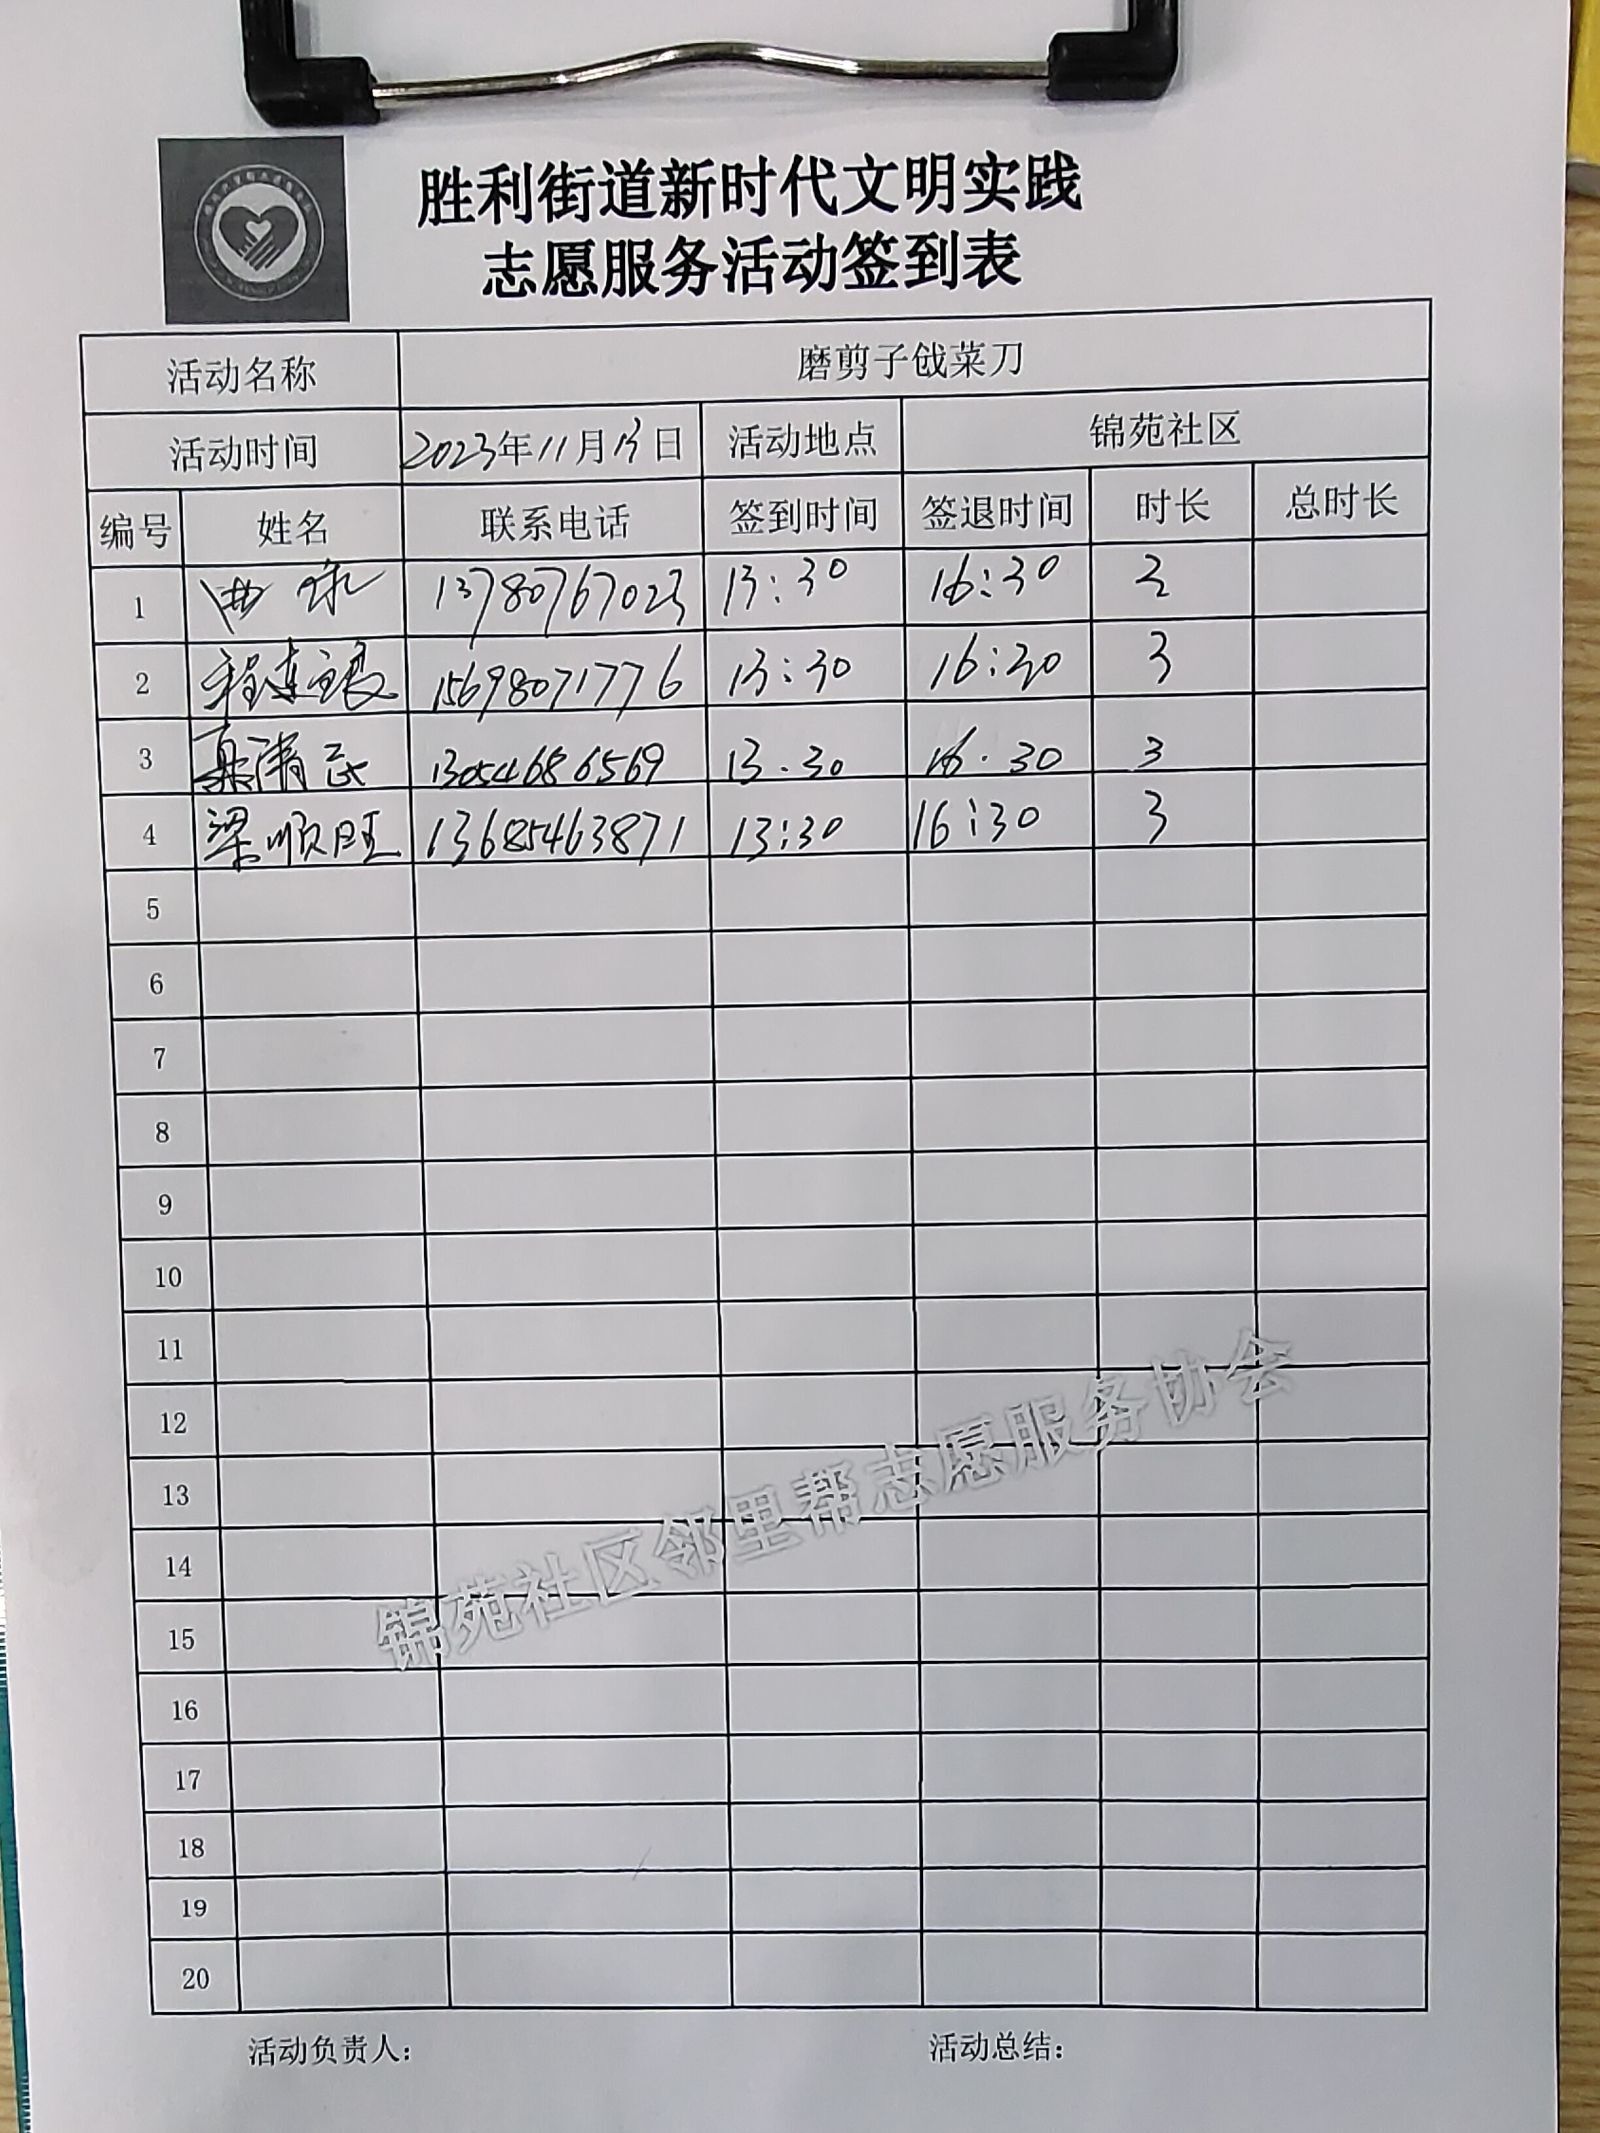 胜利街道新时代文明实践
志愿服务活动签到表
活动名称 磨剪子戗菜刀
活动时间 2023年11月13日 活动地点 锦苑社区
编号 姓名 联系电话 签到时间 签退时间 时长 总时长
1 13780767023 13:30 16:30 3
2 程连银 15698071776 13:30 16:30 3
3 清民 13054686569 13.30 16.30 3
4 梁顺旺 13685463871 13:30 16:30 3
5
6
7
8
9
10
11
12
13
14
15
16
17
18
19
20
锦苑社区邻里帮志愿服务协会
活动负责人: 活动总结: